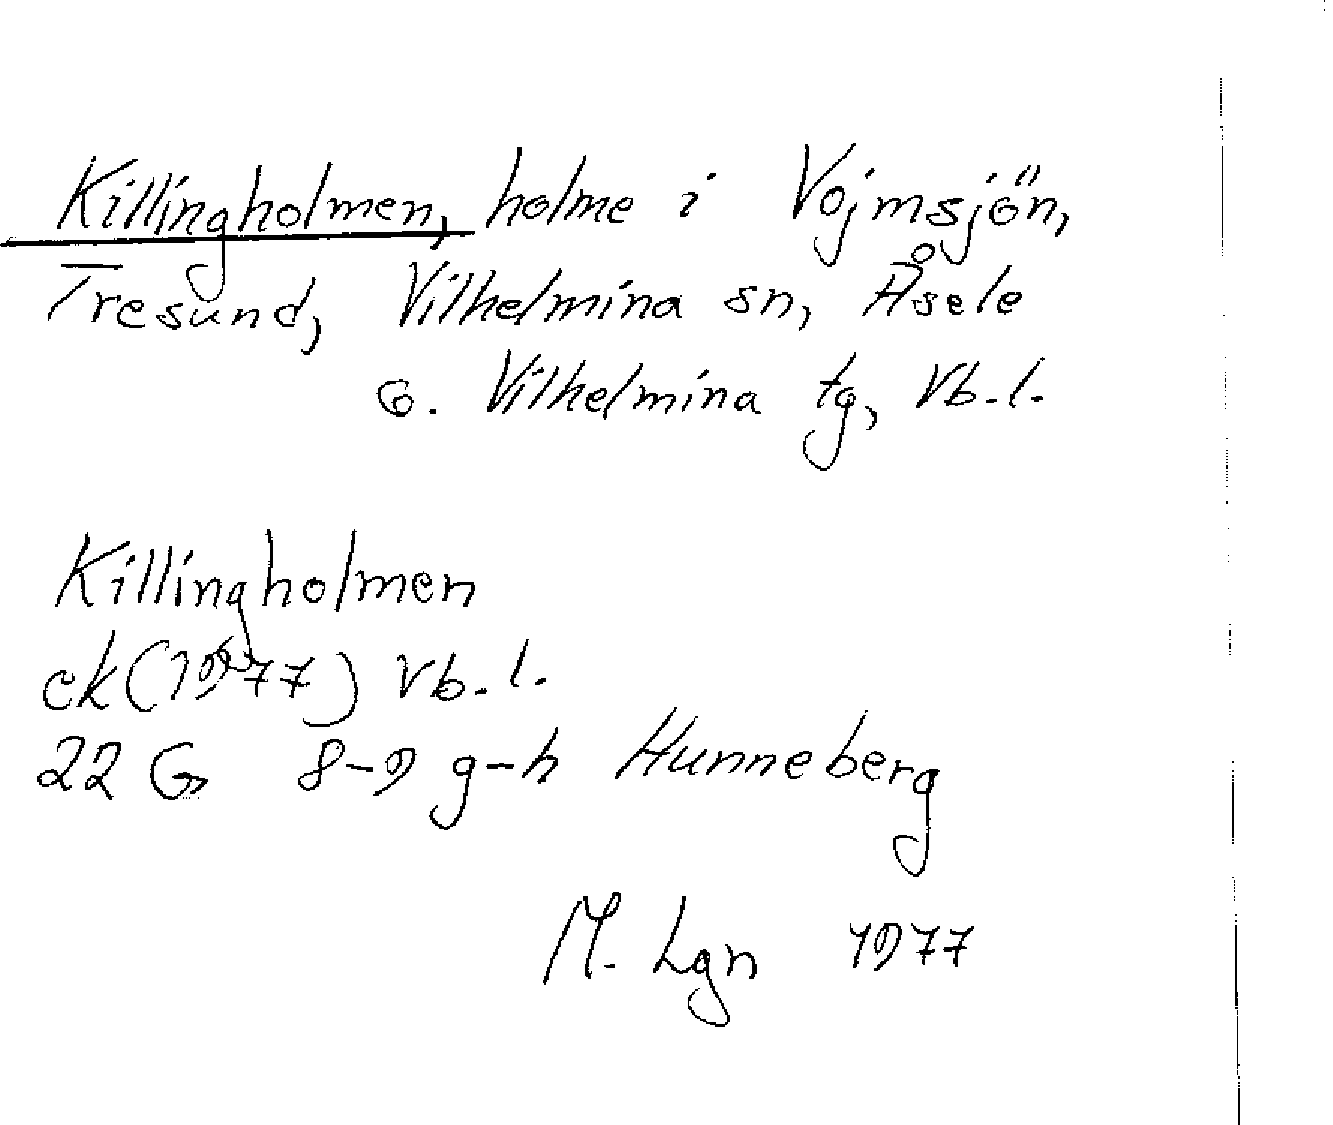 Killingholmen, holme i Vojmsjön,
Tresund, Vilhelmina sn, Åsele
o. Vilhelmina tg, Vb.l.
Killingholmen
ek(1977) Vb.l.
22 G 8-9 g-h Hunneberg
M. Lgn 1977